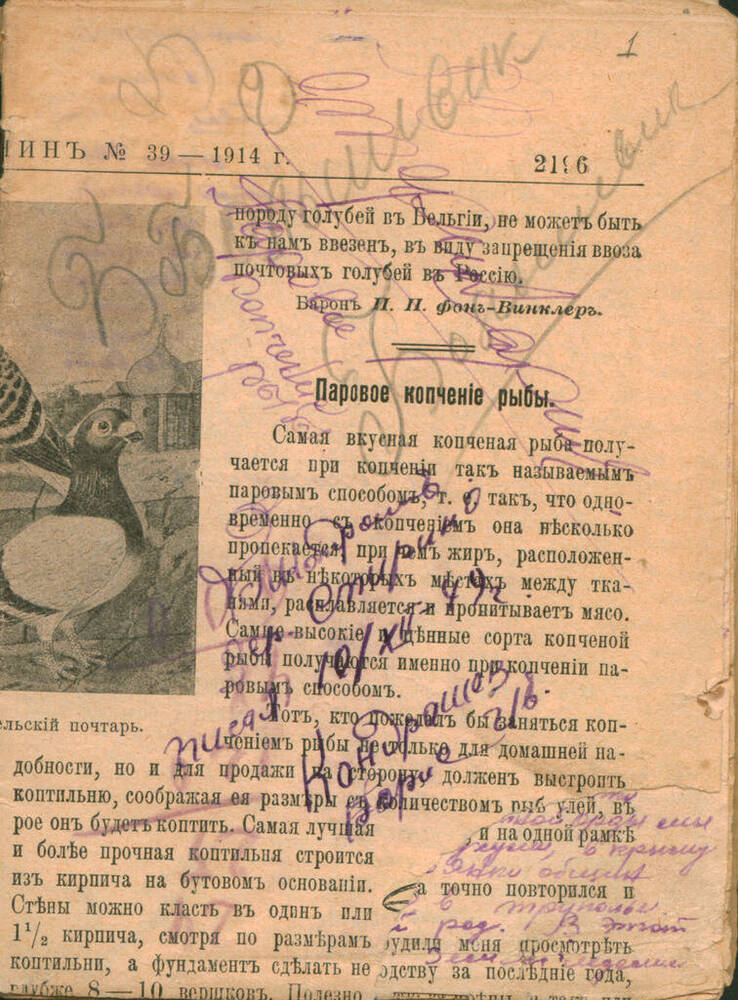 1
№ 39 — 1914 г.
2196
породу голубей въ Бельгіи, не можетъ быть
къ намъ ввезенъ, въ виду запрещенія ввоза
почтовыхъ голубей въ Россію.
Баронъ П. П. фонъ-Винклеръ.
Паровое копченіе рыбы.
Самая вкусная копченая рыба полу-
чается при копченіи такъ называемымъ
паровымъ способомъ, т. е. такъ, что одно-
временно съ копченіемъ она нѣсколько
пропекается, при чемъ жиръ, расположен-
ный въ нѣкоторыхъ мѣстахъ между тка-
нями, расплавляется и пропитываетъ мясо.
Самые высокіе и цѣнные сорта копченой
рыбы получаются именно при копченіи па-
ровымъ способомъ.
Тотъ, кто пожелалъ бы заняться коп-
ченіемъ рыбы не только для домашней на-
добности, но и для продажи на сторону, долженъ выстроить
коптильню, соображая ея размѣры съ количествомъ рыб
рое онъ будетъ коптить. Самая лучшая
и болѣе прочная коптильня строится
изъ кирпича на бутовомъ основаніи.
Стѣны можно класть въ одинъ или
1 1/2 кирпича, смотря по размѣрамъ
коптильни, а фундаментъ сдѣлать не
глубже 8 — 10 вершковъ. Полезно
ельскій почтарь.
улей, въ
и на одной рамкѣ
а точно повторился и
удили меня просмотрѣть
одству за послѣдніе года,
Большевик
Большевик
Паровое
копчение
рыбы
10/XII-49г.
писал
Кондрашов
Борис